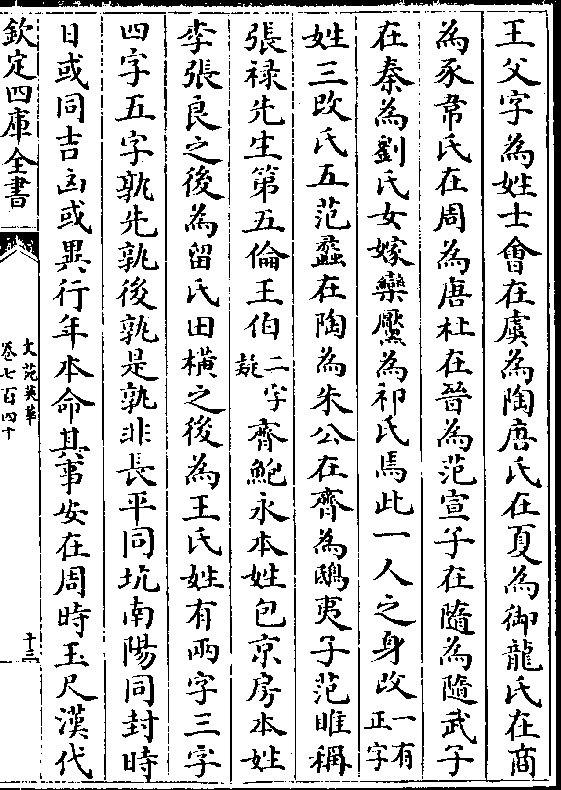 王父字為姓士會在虞為陶唐氏在夏為御龍氏在商
為豕韋氏在周為唐杜在晉為范宣子在隨為隨武子
在秦為劉氏女嫁欒黶為祁氏焉此一人之身改一有正字
姓三改氏五范蠡在陶為朱公在齊為鴟夷子范睢稱
張禄先生第五倫王伯二字疑齊鮑永本姓包京房本姓
李張良之後為留氏田橫之後為王氏姓有兩字三字
四字五字孰先孰後孰是孰非長平同坑南陽同封時
日或同吉凶或異行年本命其事安在周時玉尺漢代
欽定四庫全書
文苑英華
卷七百四十
十三